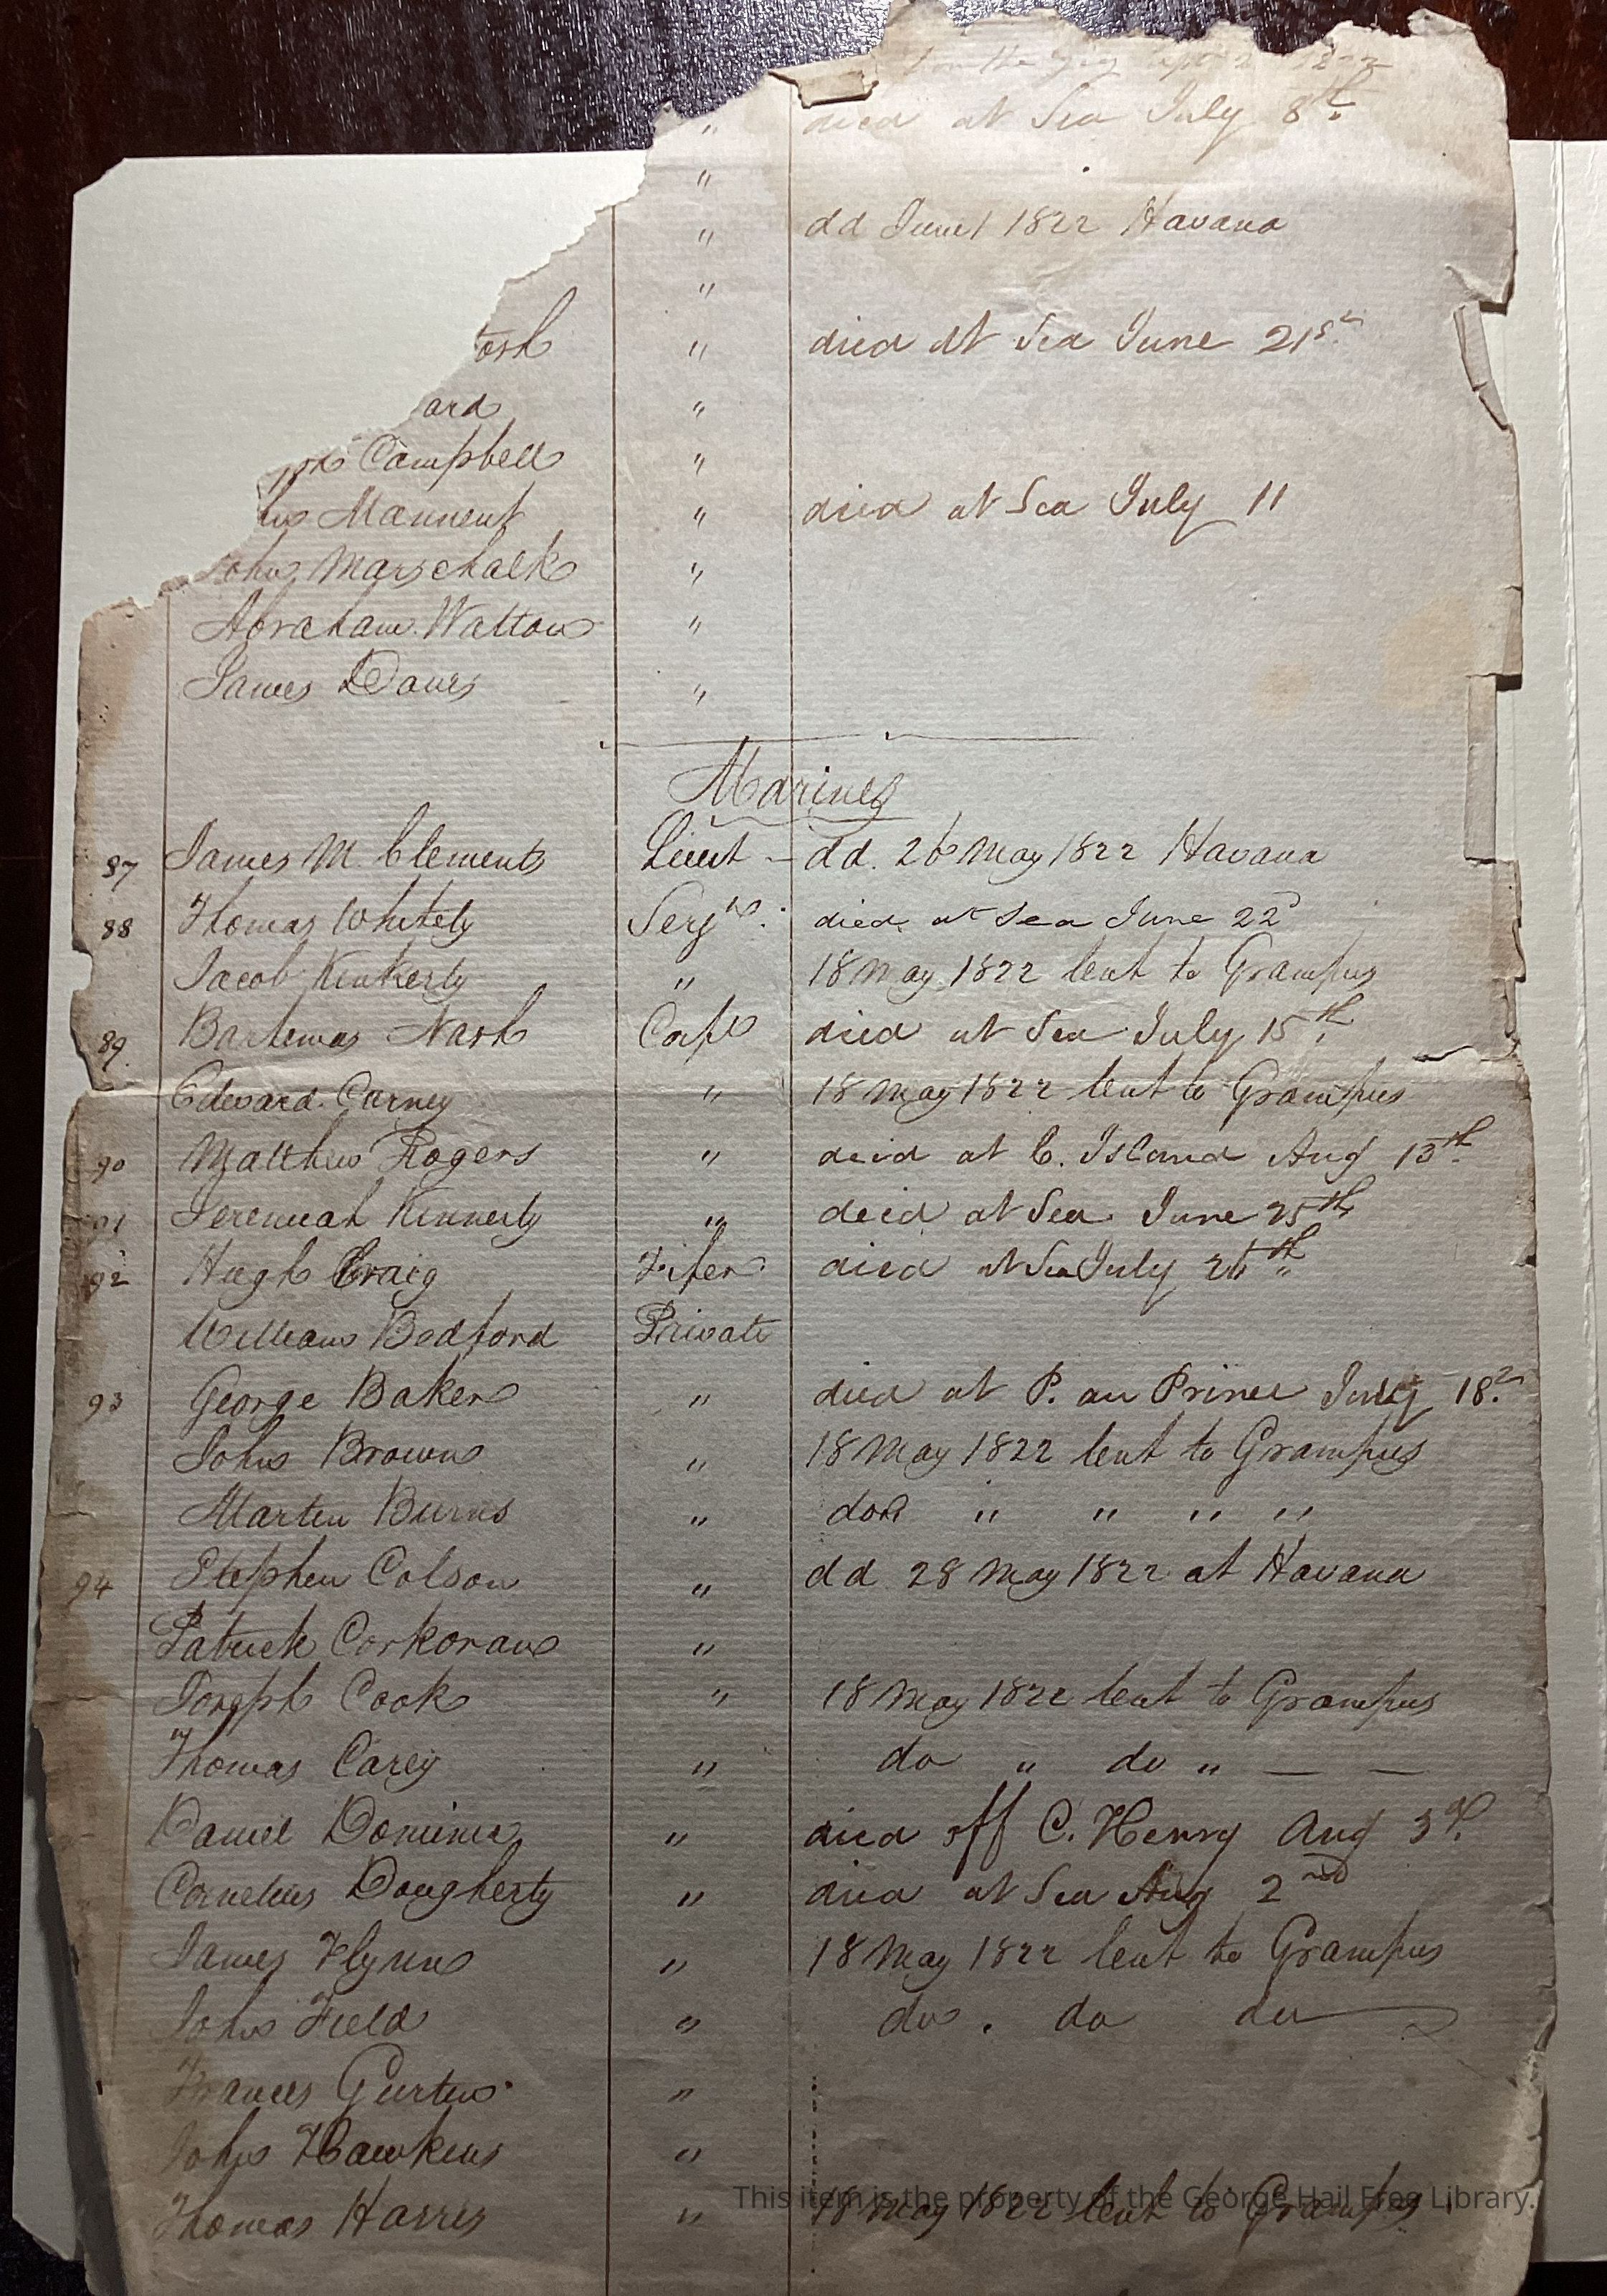 on the
" died at Sea July 8th.
"
" dd June 1 1822 Havana
"
tosh " died at Sea June 21st
ard "
Campbell "
Mannent " died at Sea July 11
John Marschalk "
Abraham Walton "
James Dawes "
Marines
87 James M. Clements Lieut - dd. 26 May 1822 Havana
88 Thomas Whitely Sergt. died at Sea June 22d
Jacob Kinkerly " 18 May 1822 lent to Grampus
89. Bartemas Nash Corpl died at Sea July 15th.
Edward Carney " 18 May 1822 lent to Grampus
90 Matthew Rogers " died at C. Island Aug 13th.
91 Jeremiah Kennerly " died at Sea June 25th
92 Hugh Craig Fifer died at Sea July 26th
William Bedford Private
93 George Baker " died at P. au Prince July 18.
John Brown " 18 May 1822 lent to Grampus
Marten Burns " do " " " "
94 Stephen Colson " dd 28 May 1822 at Havana
Patrick Corkoran "
Joseph Cook " 18 May 1822 lent to Grampus
Thomas Carey " do " do " — —
Daniel " died off C. Henry Aug 3d.
Cornelius Dougherty " died at Sea Aug 2nd
James Flynn " 18 May 1822 lent to Grampus
John Field " do . do do
Frances Gurten "
John Hawkins "
Thomas Harris " 18 May 1822 lent to Grampus
This item is the property of the George Hail Free Library.